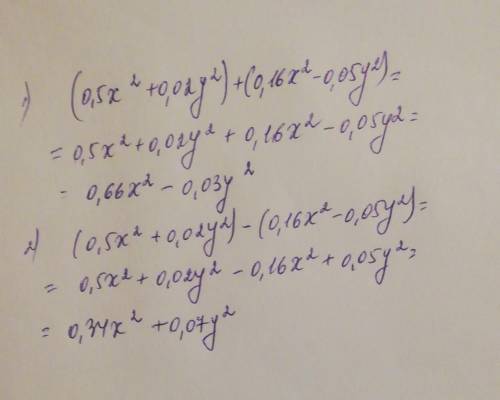 1) (0,5x² + 0,02y²) + (0,16x² - 0,05y²) =
= 0,5x² + 0,02y² + 0,16x² - 0,05y2 =
= 0,66x² - 0,03y²
2) (0,5x² + 0,02y²) - (0,16x² - 0,05y²) =
= 0,5x² + 0,02y² - 0,16x² + 0,05y² =
= 0,34x² + 0,07y²